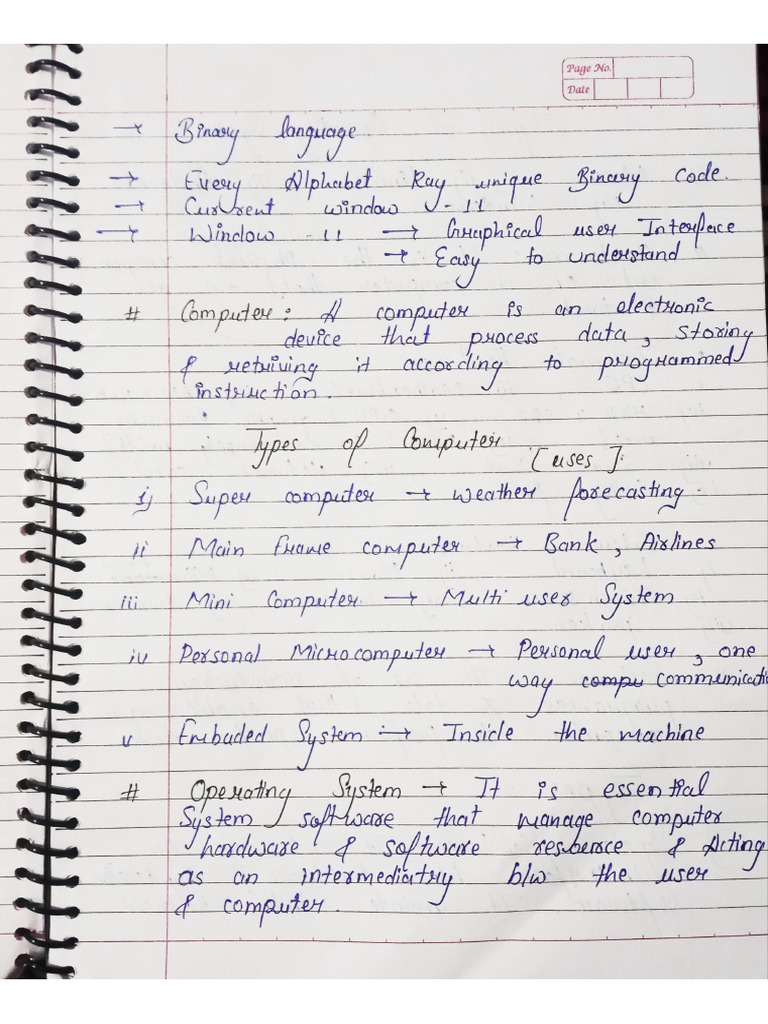 Page No.
Date
→ Binary language
→ Every Alphabet Ray unique Binary Code.
→ Current window - 11
→ Window - 11 → Graphical user Interface
→ Easy to understand
# Computer : A computer is an electronic
device that process data, storing
& retriving it according to programmed
instruction.
Types of Computer
[uses]:
i) Super computer → weather forecasting.
ii Main frame computer → Bank, Airlines
iii Mini Computer → Multi user System
iv Personal Microcomputer → Personal user, one
way compu communicatio
v Embaded System → Inside the machine
# Operating System → It is essential
System software that manage computer
hardware & software resource & Acting
as an intermediatry b/w the user
& computer.